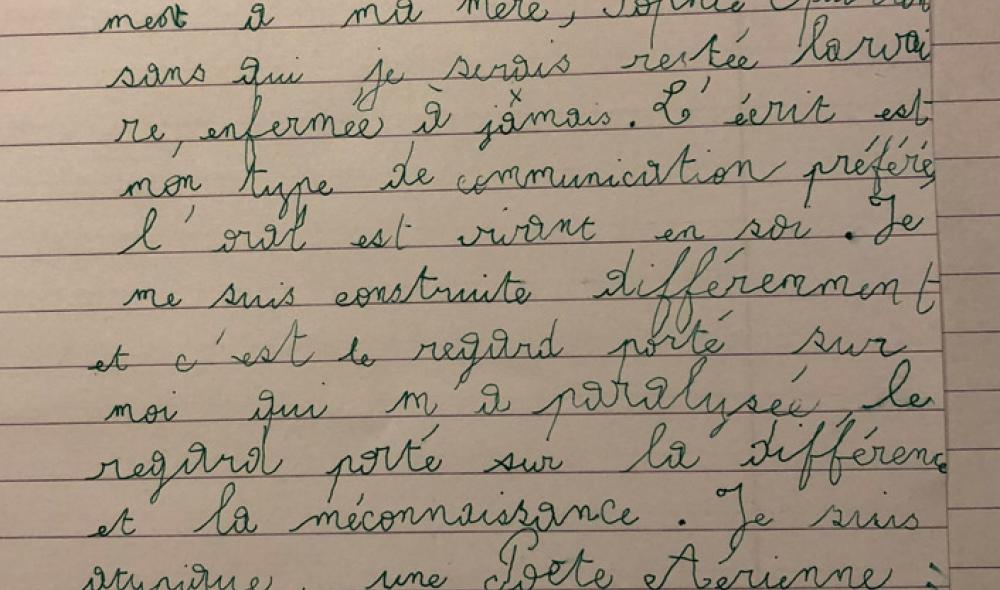 ment à ma mère,
sans qui je serais restée larvai
re, enfermée à jamais. L'écrit est
mon type de communication préféré
l'oral est vivant en soi. Je
me suis construite différemment
et c'est le regard porté sur
moi qui m'a paralysée, le
regard porté sur la différenc
et la méconnaissance. Je suis
atypique, une Poète Aérienne :